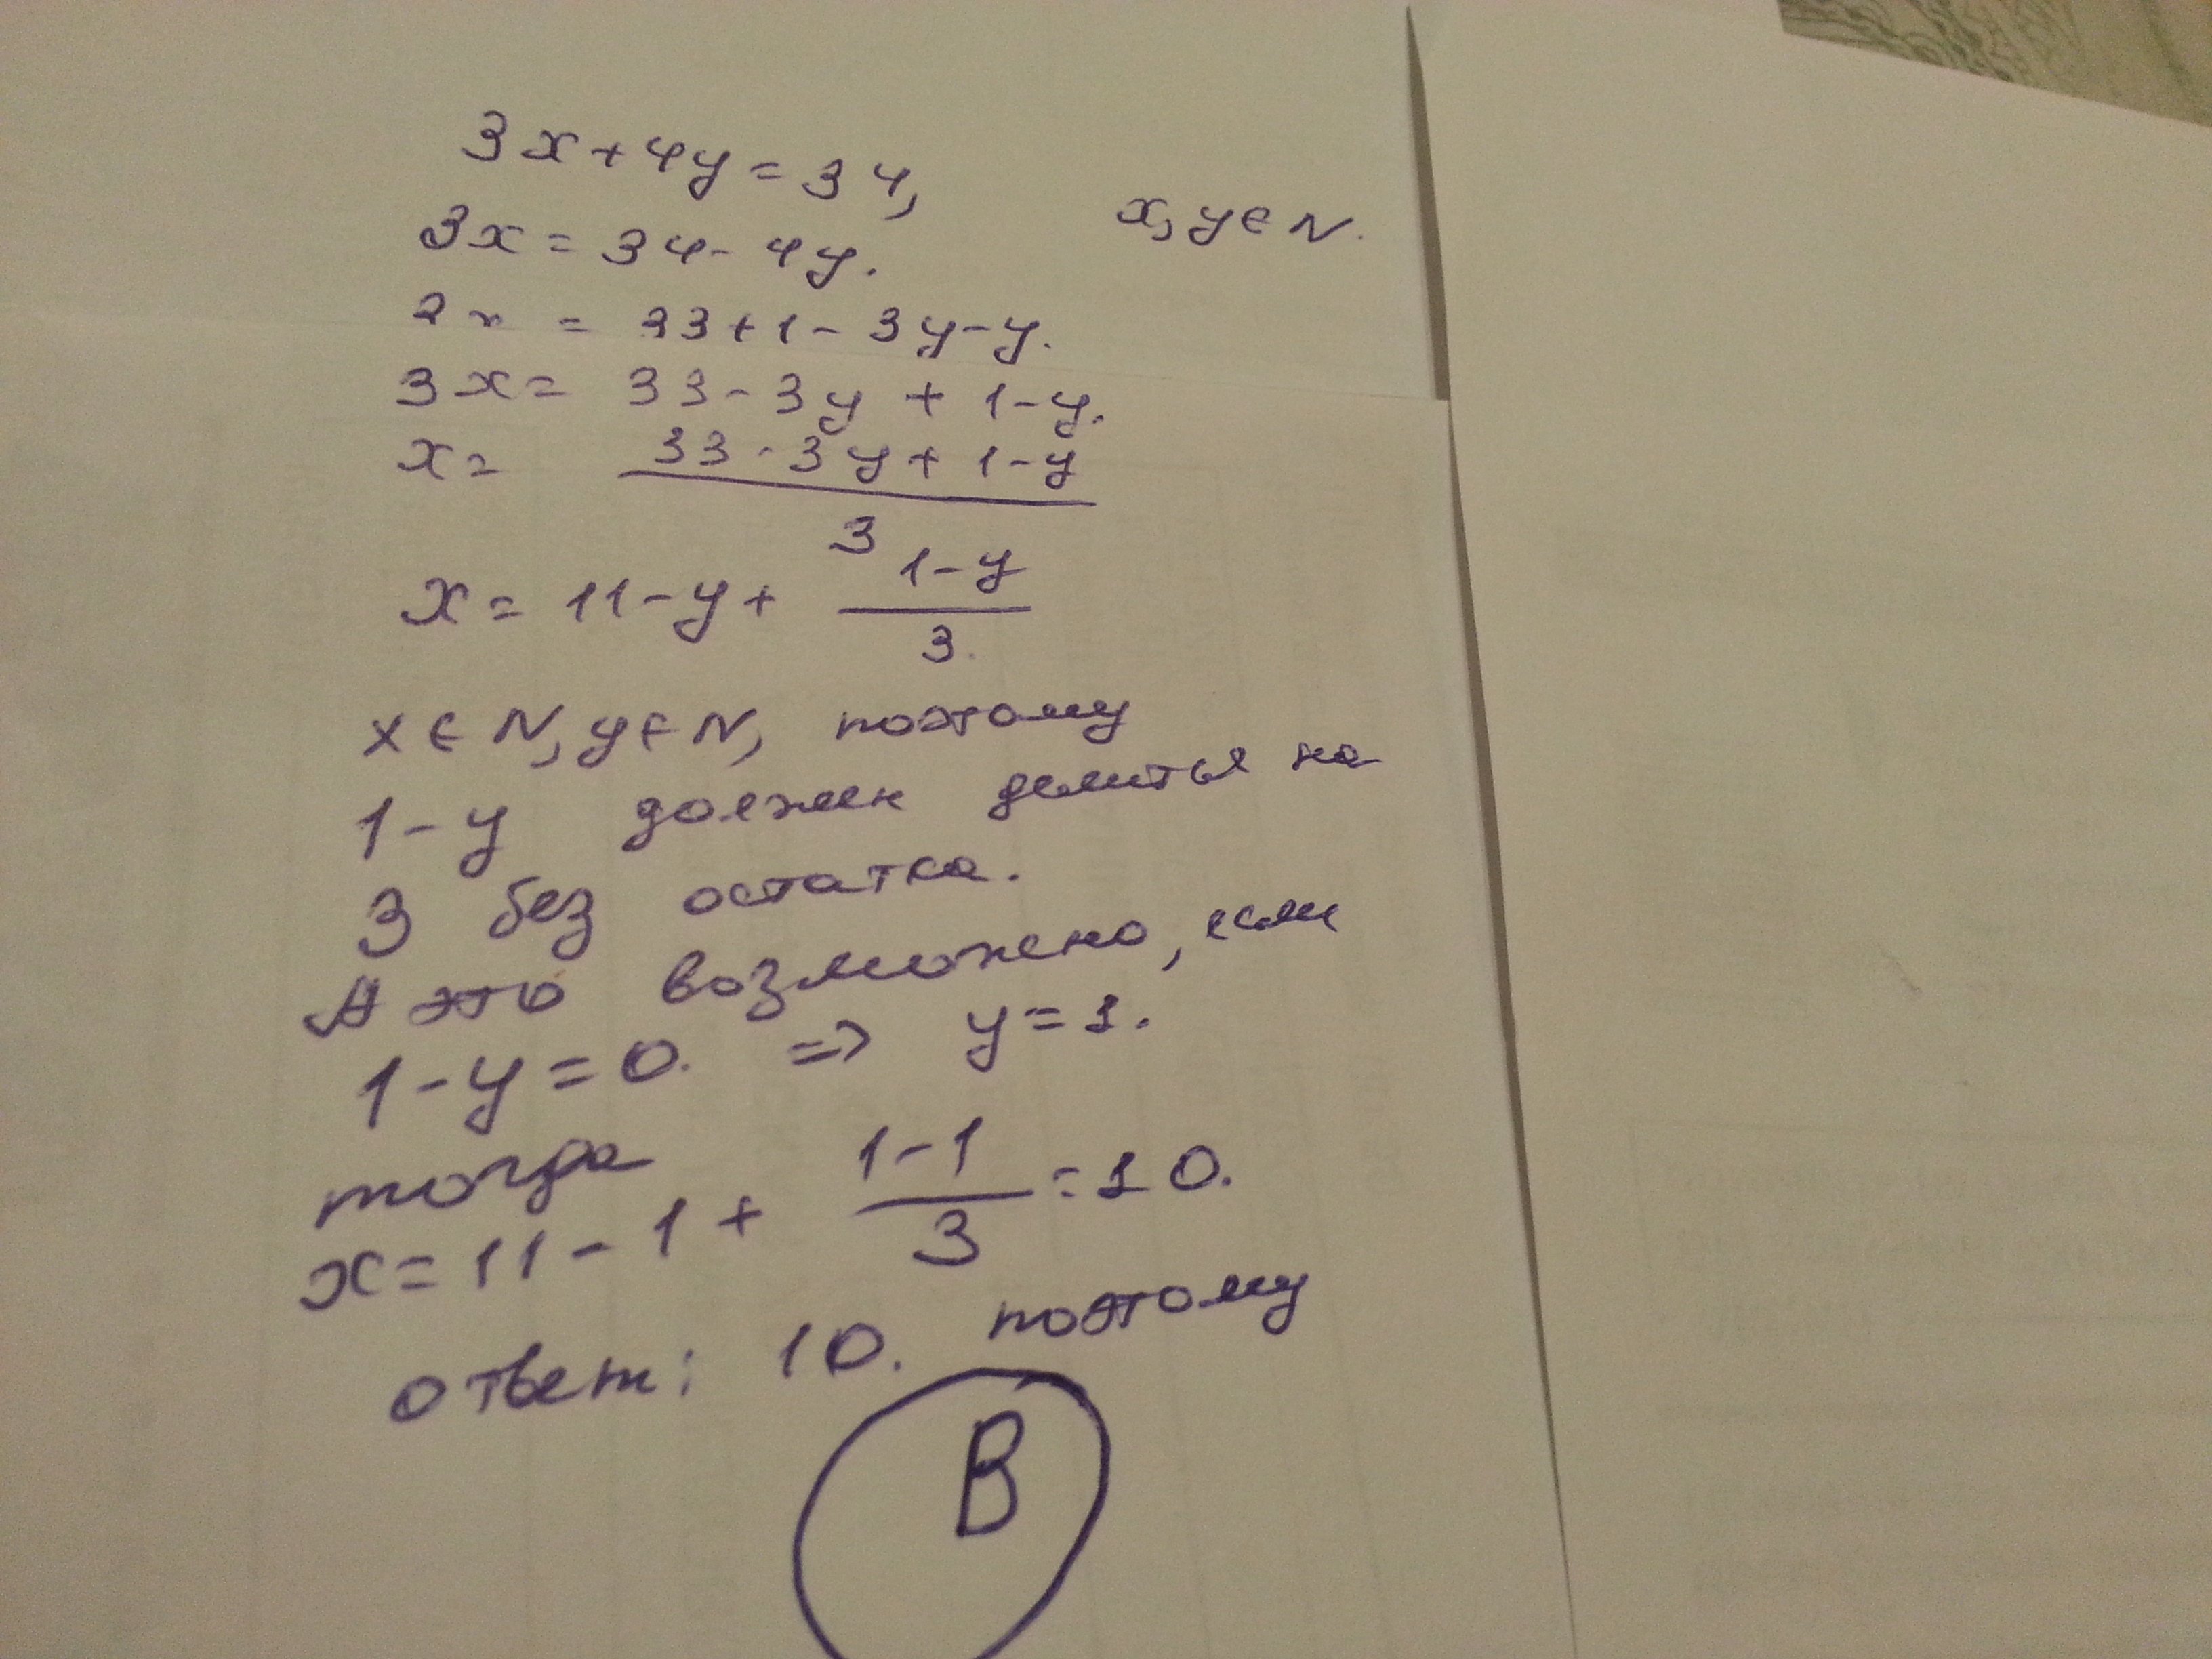 3x+4y=34,
x, y∈N.
3x=34-4y.
3x = 33+1-3y-y.
3x= 33-3y + 1-y.
x= (33-3y+1-y)/3
x= 11-y+ (1-y)/3.
x∈N, y∈N, поэтому
1-y должен делиться на
3 без остатка.
А это возможно, если
1-y=0. => y=1.
тогда
x=11-1+ (1-1)/3 =10.
ответ: 10. поэтому
В